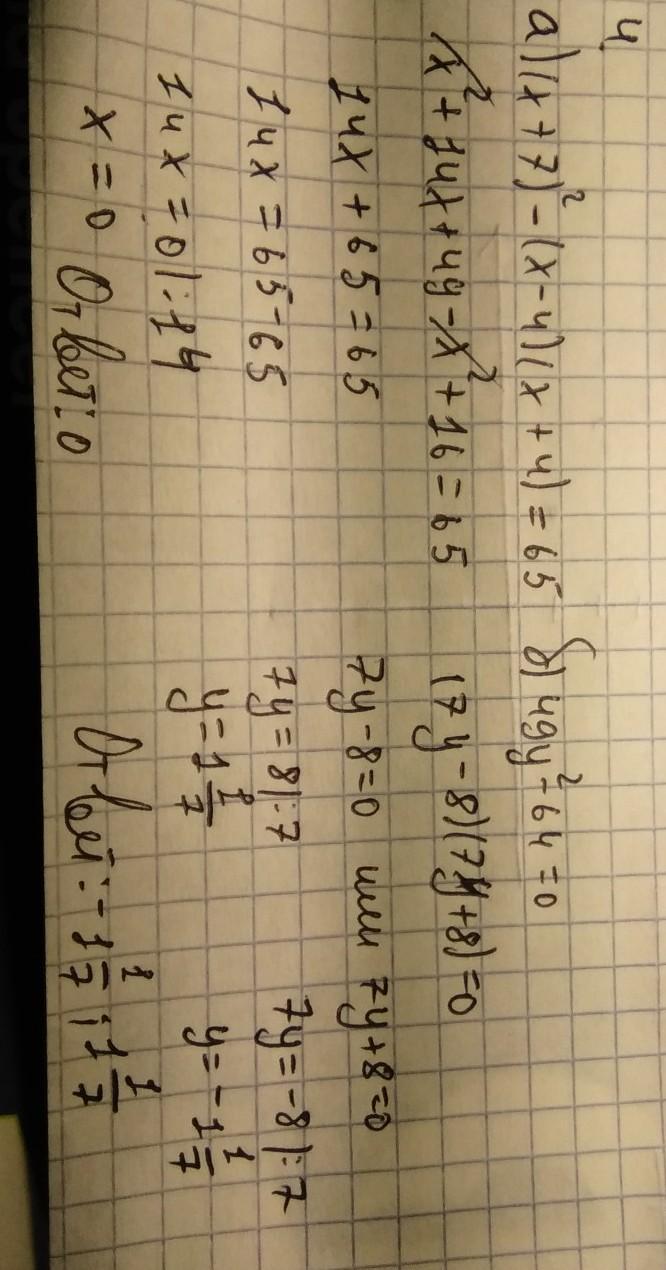 4
а) (x + 7)² - (x - 4)(x + 4) = 65
x² + 14x + 49 - x² + 16 = 65
14x + 65 = 65
14x = 65 - 65
14x = 0 |:14
x = 0 Ответ: 0
б) 49y² - 64 = 0
(7y - 8)(7y + 8) = 0
7y - 8 = 0 или 7y + 8 = 0
7y = 8 |:7 7y = -8 |:7
y = 1 1/7 y = -1 1/7
Ответ: -1 1/7; 1 1/7